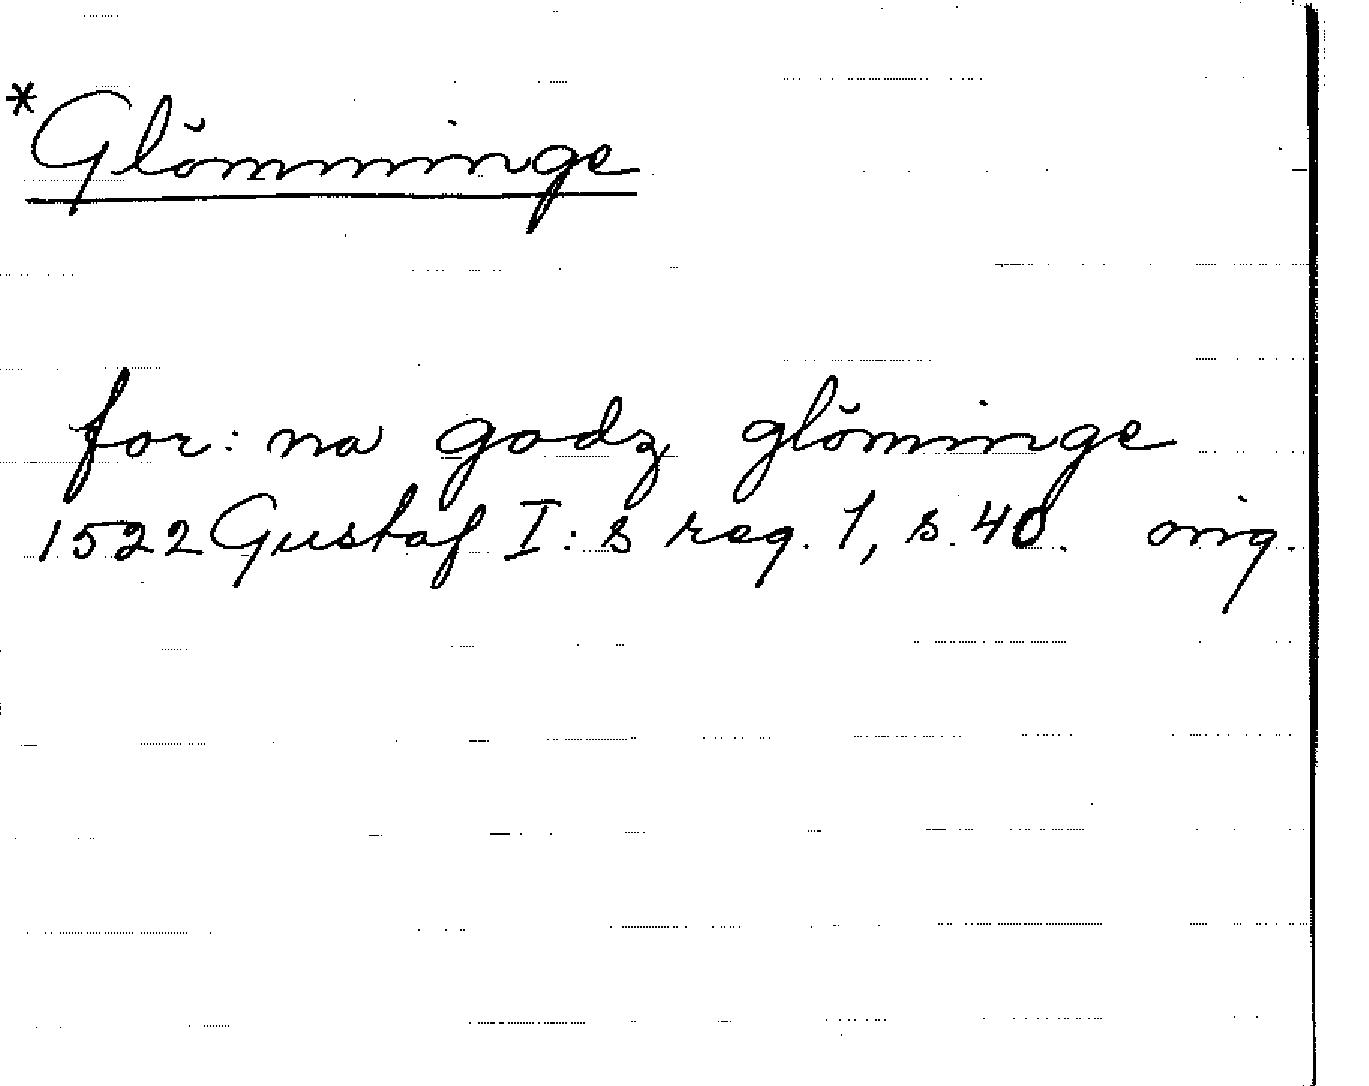 *Glömminge
for: na godz glöminge
1522 Gustaf I:s reg. 1, s. 40. orig.